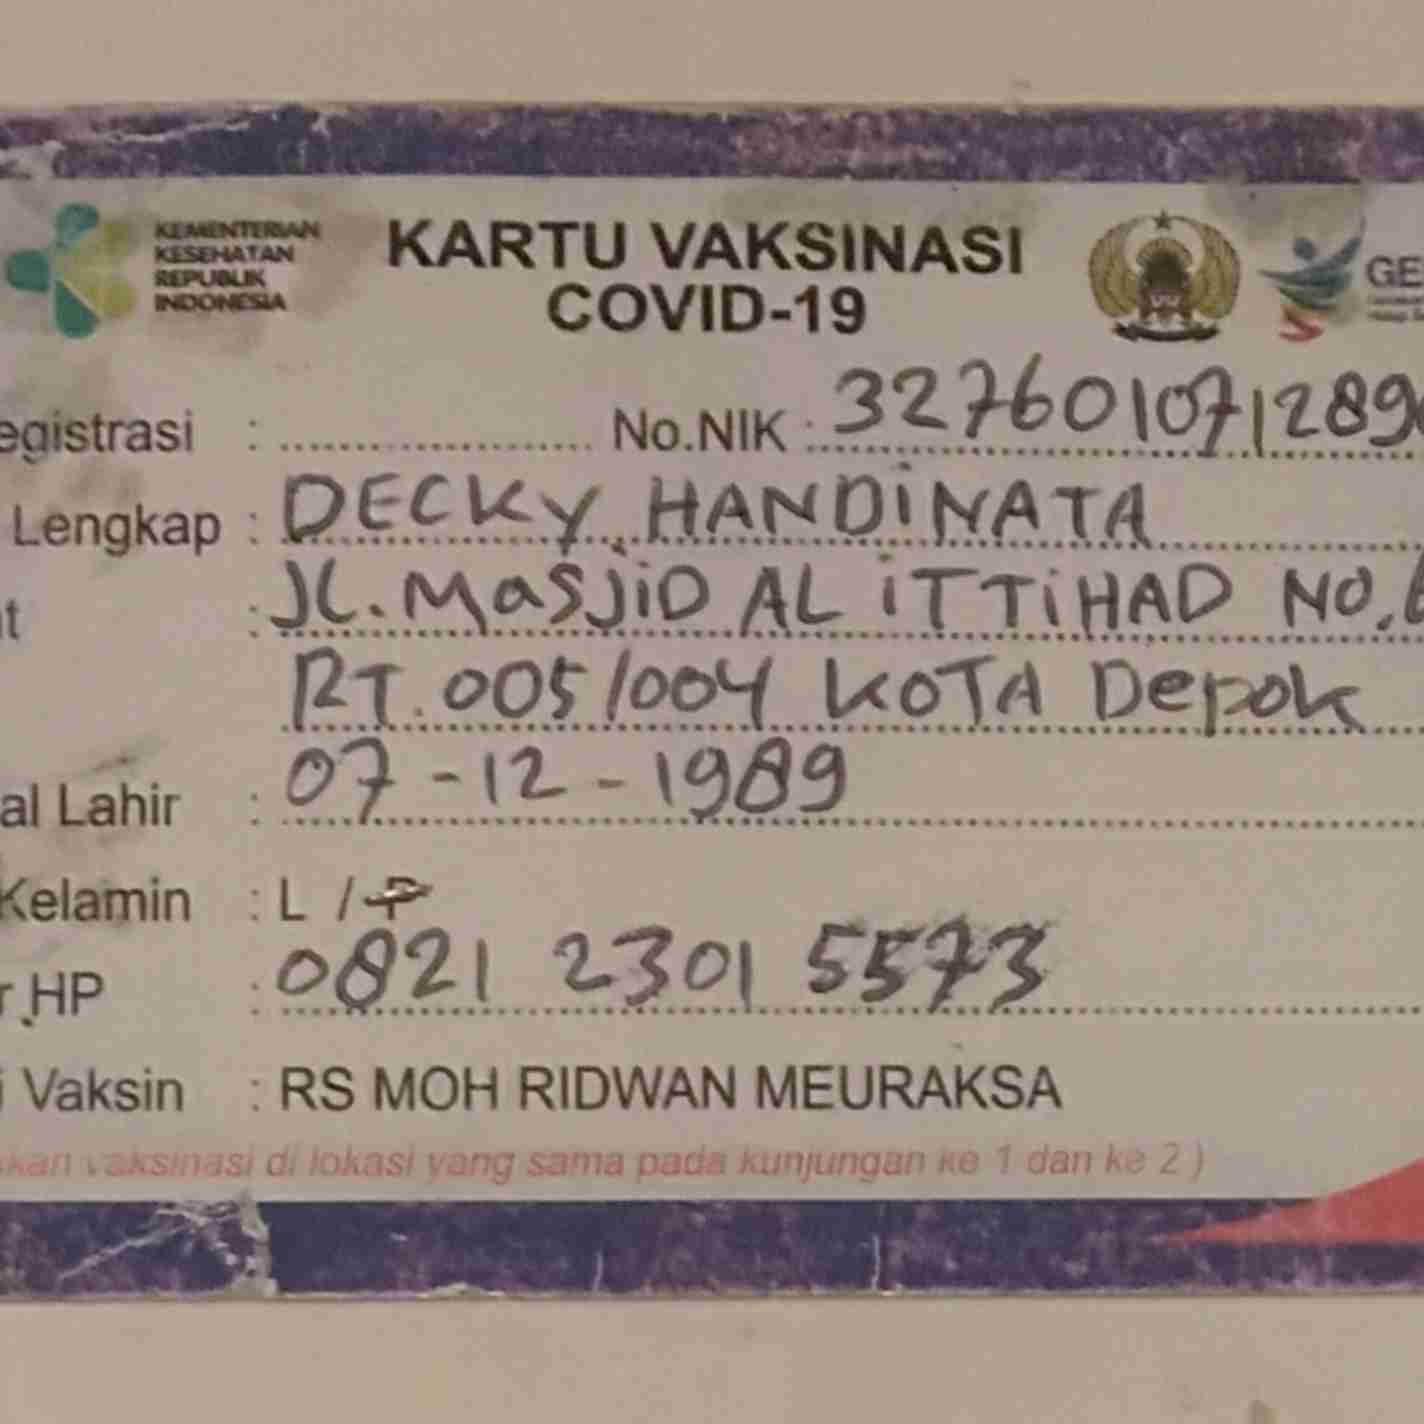 KEMENTERIAN
KESEHATAN
REPUBLIK
INDONESIA
KARTU VAKSINASI
COVID-19
GE
egistrasi : No.NIK : 32760107128 9
Lengkap : DECKY HANDiNATA
at : JL. MasjiD AL iTTiHAD NO.
RT. 005/004 KOTA Depok
al Lahir : 07-12-1989
Kelamin : L / P
r HP : 0821 2301 5573
i Vaksin : RS MOH RIDWAN MEURAKSA
kan vaksinasi di lokasi yang sama pada kunjungan ke 1 dan ke 2 )